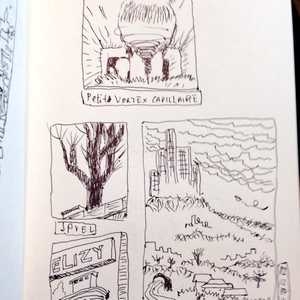 Petits VORTEX CAPILLAIRE
JAVEL
ELIZY